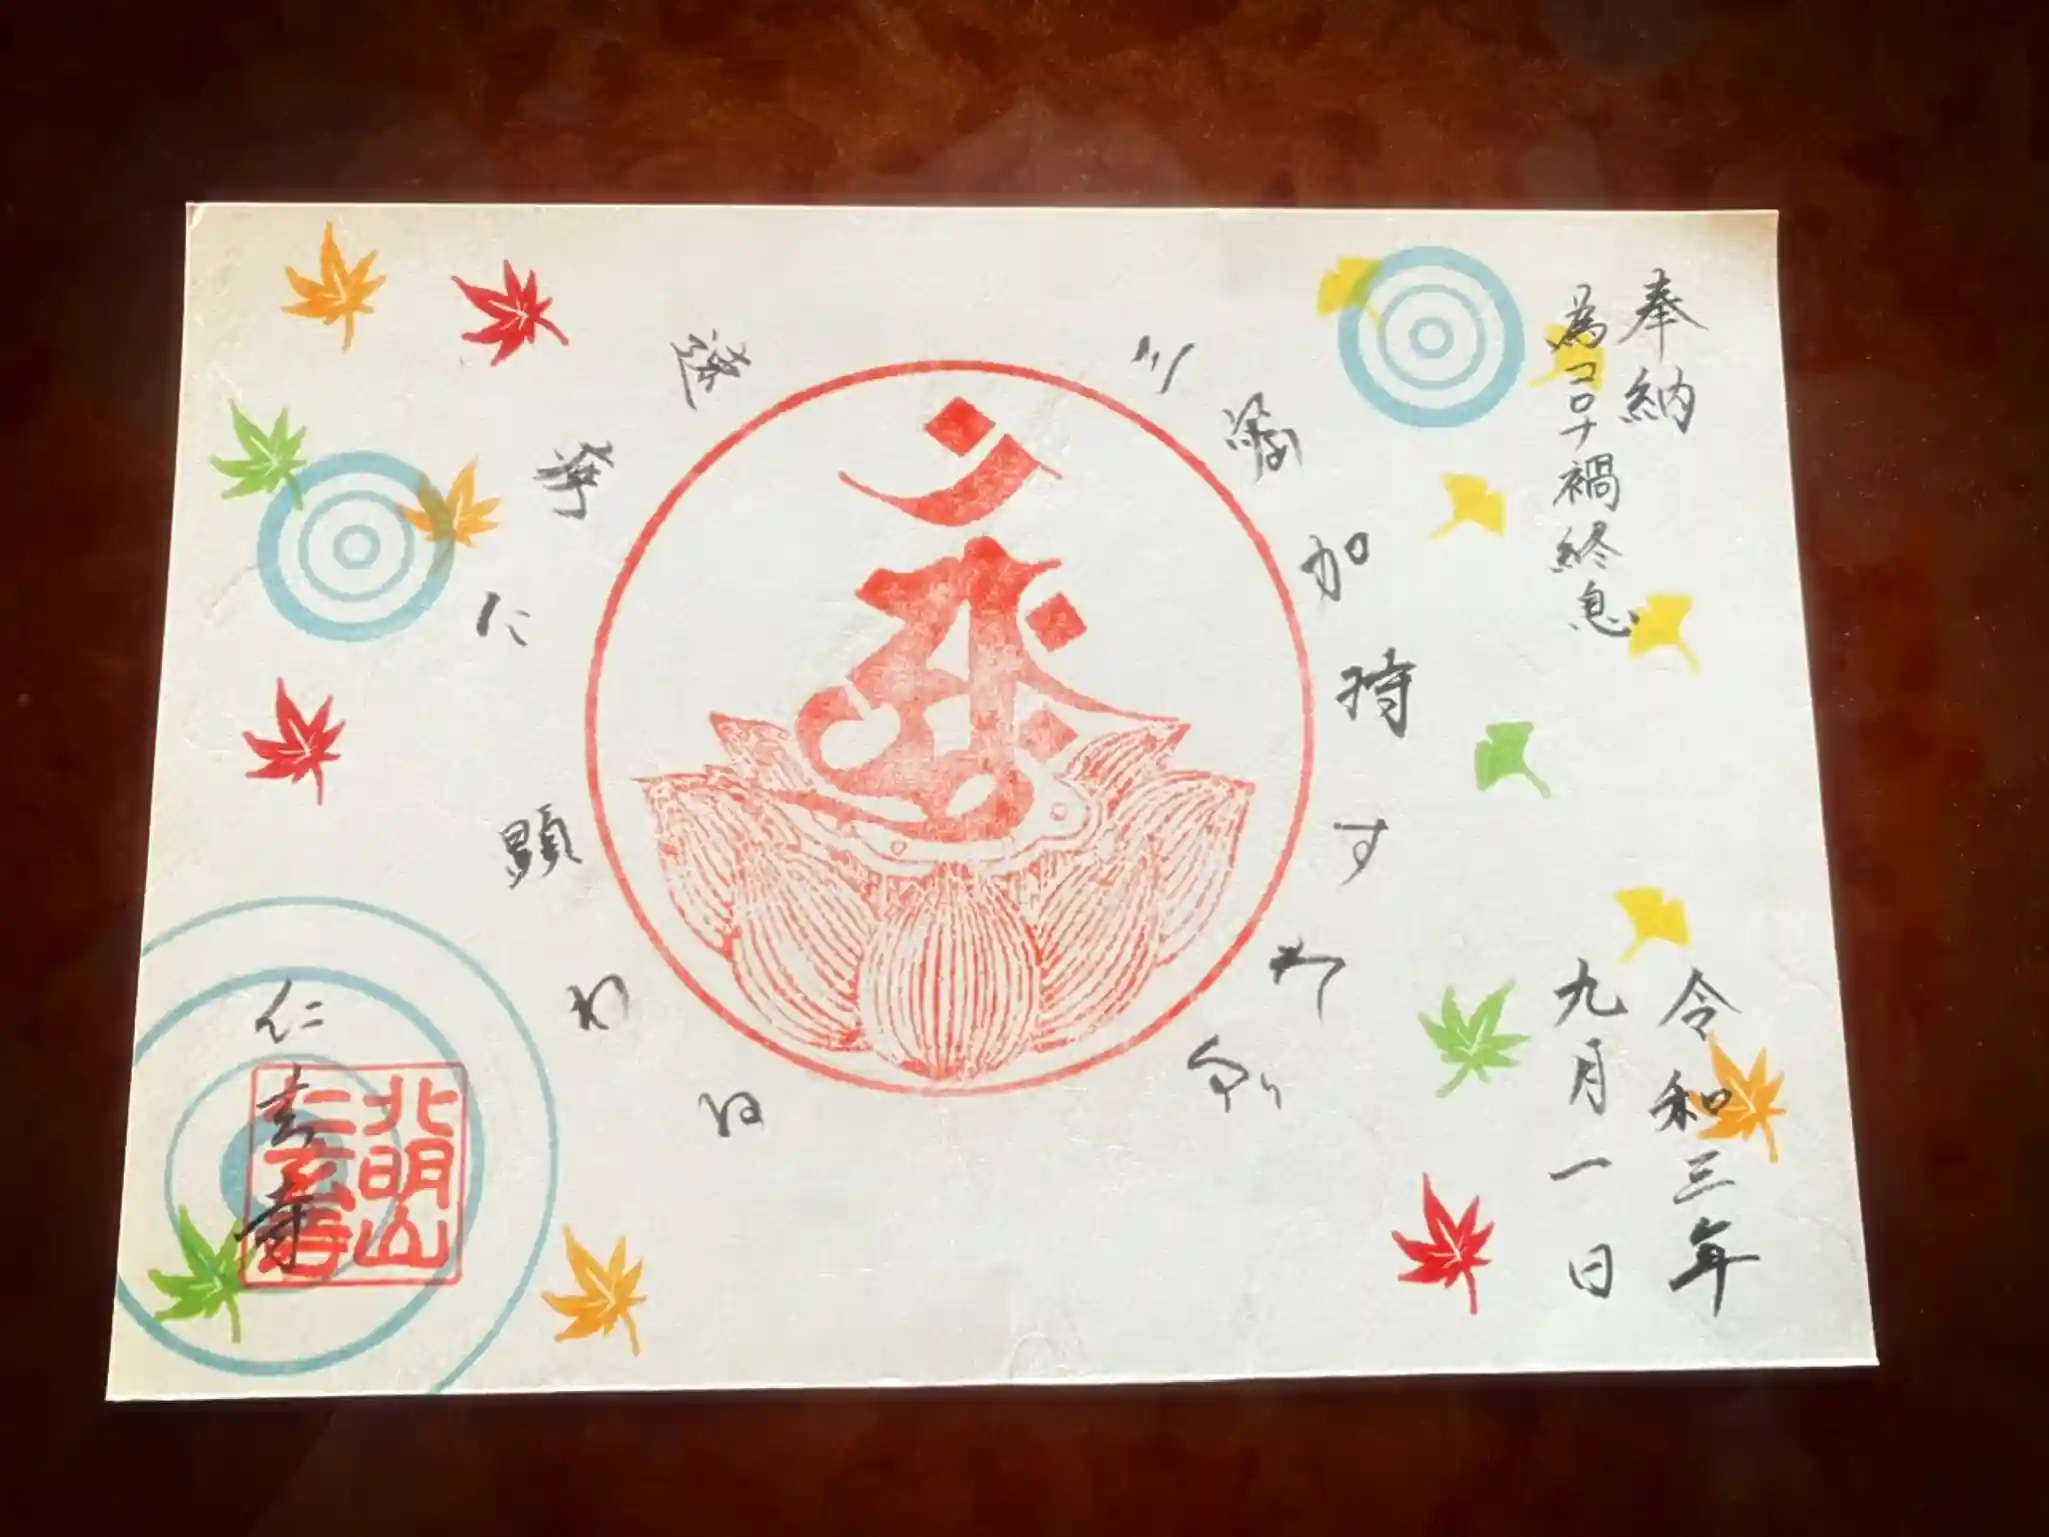 奉納
為コロナ禍終息
令和三年
九月一日
三密加持すれば
速疾に顕わる
仁玄寺
北明山
仁玄寺